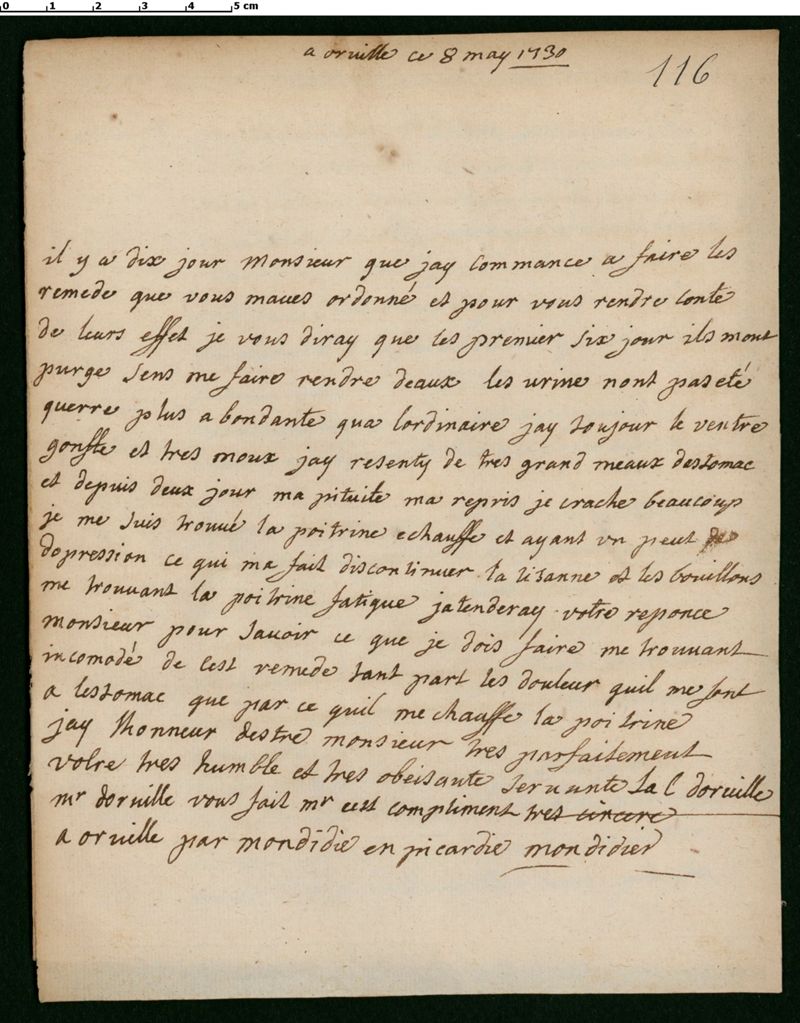 0 1 2 3 4 5 cm
a orville ce 8 may 1730
116
il y a dix jour monsieur que jay commance a faire les
remede que vous maves ordonné et pour vous rendre conte
de leurs effet je vous diray que les premier six jour ils mont
purge sens me faire rendre deaux les urine nont pas eté
querre plus abondante qua lordinaire jay toujour le ventre
gonfle et tres moux jay resenty de tres grand meaux destomac
et depuis deux jour ma pituite ma repris je crache beaucoup
je me suis trouué la poitrine echauffe et ayant un peut
dopression ce qui ma fait discontinuer la tisanne et les bouillons
me trouuant la poitrine fatigue jatenderay votre reponce
monsieur pour savoir ce que je dois faire me trouuant
incomodé de cest remede tant part les douleur quil me font
a lestomac que par ce quil me chauffe la poitrine
jay lhonneur destre monsieur tres parfaitement
votre tres humble et tres obeisante seruante La C dorville
mr dorville vous fait mr cest compliment tres circere
a orville par mondidie en picardie mondidier